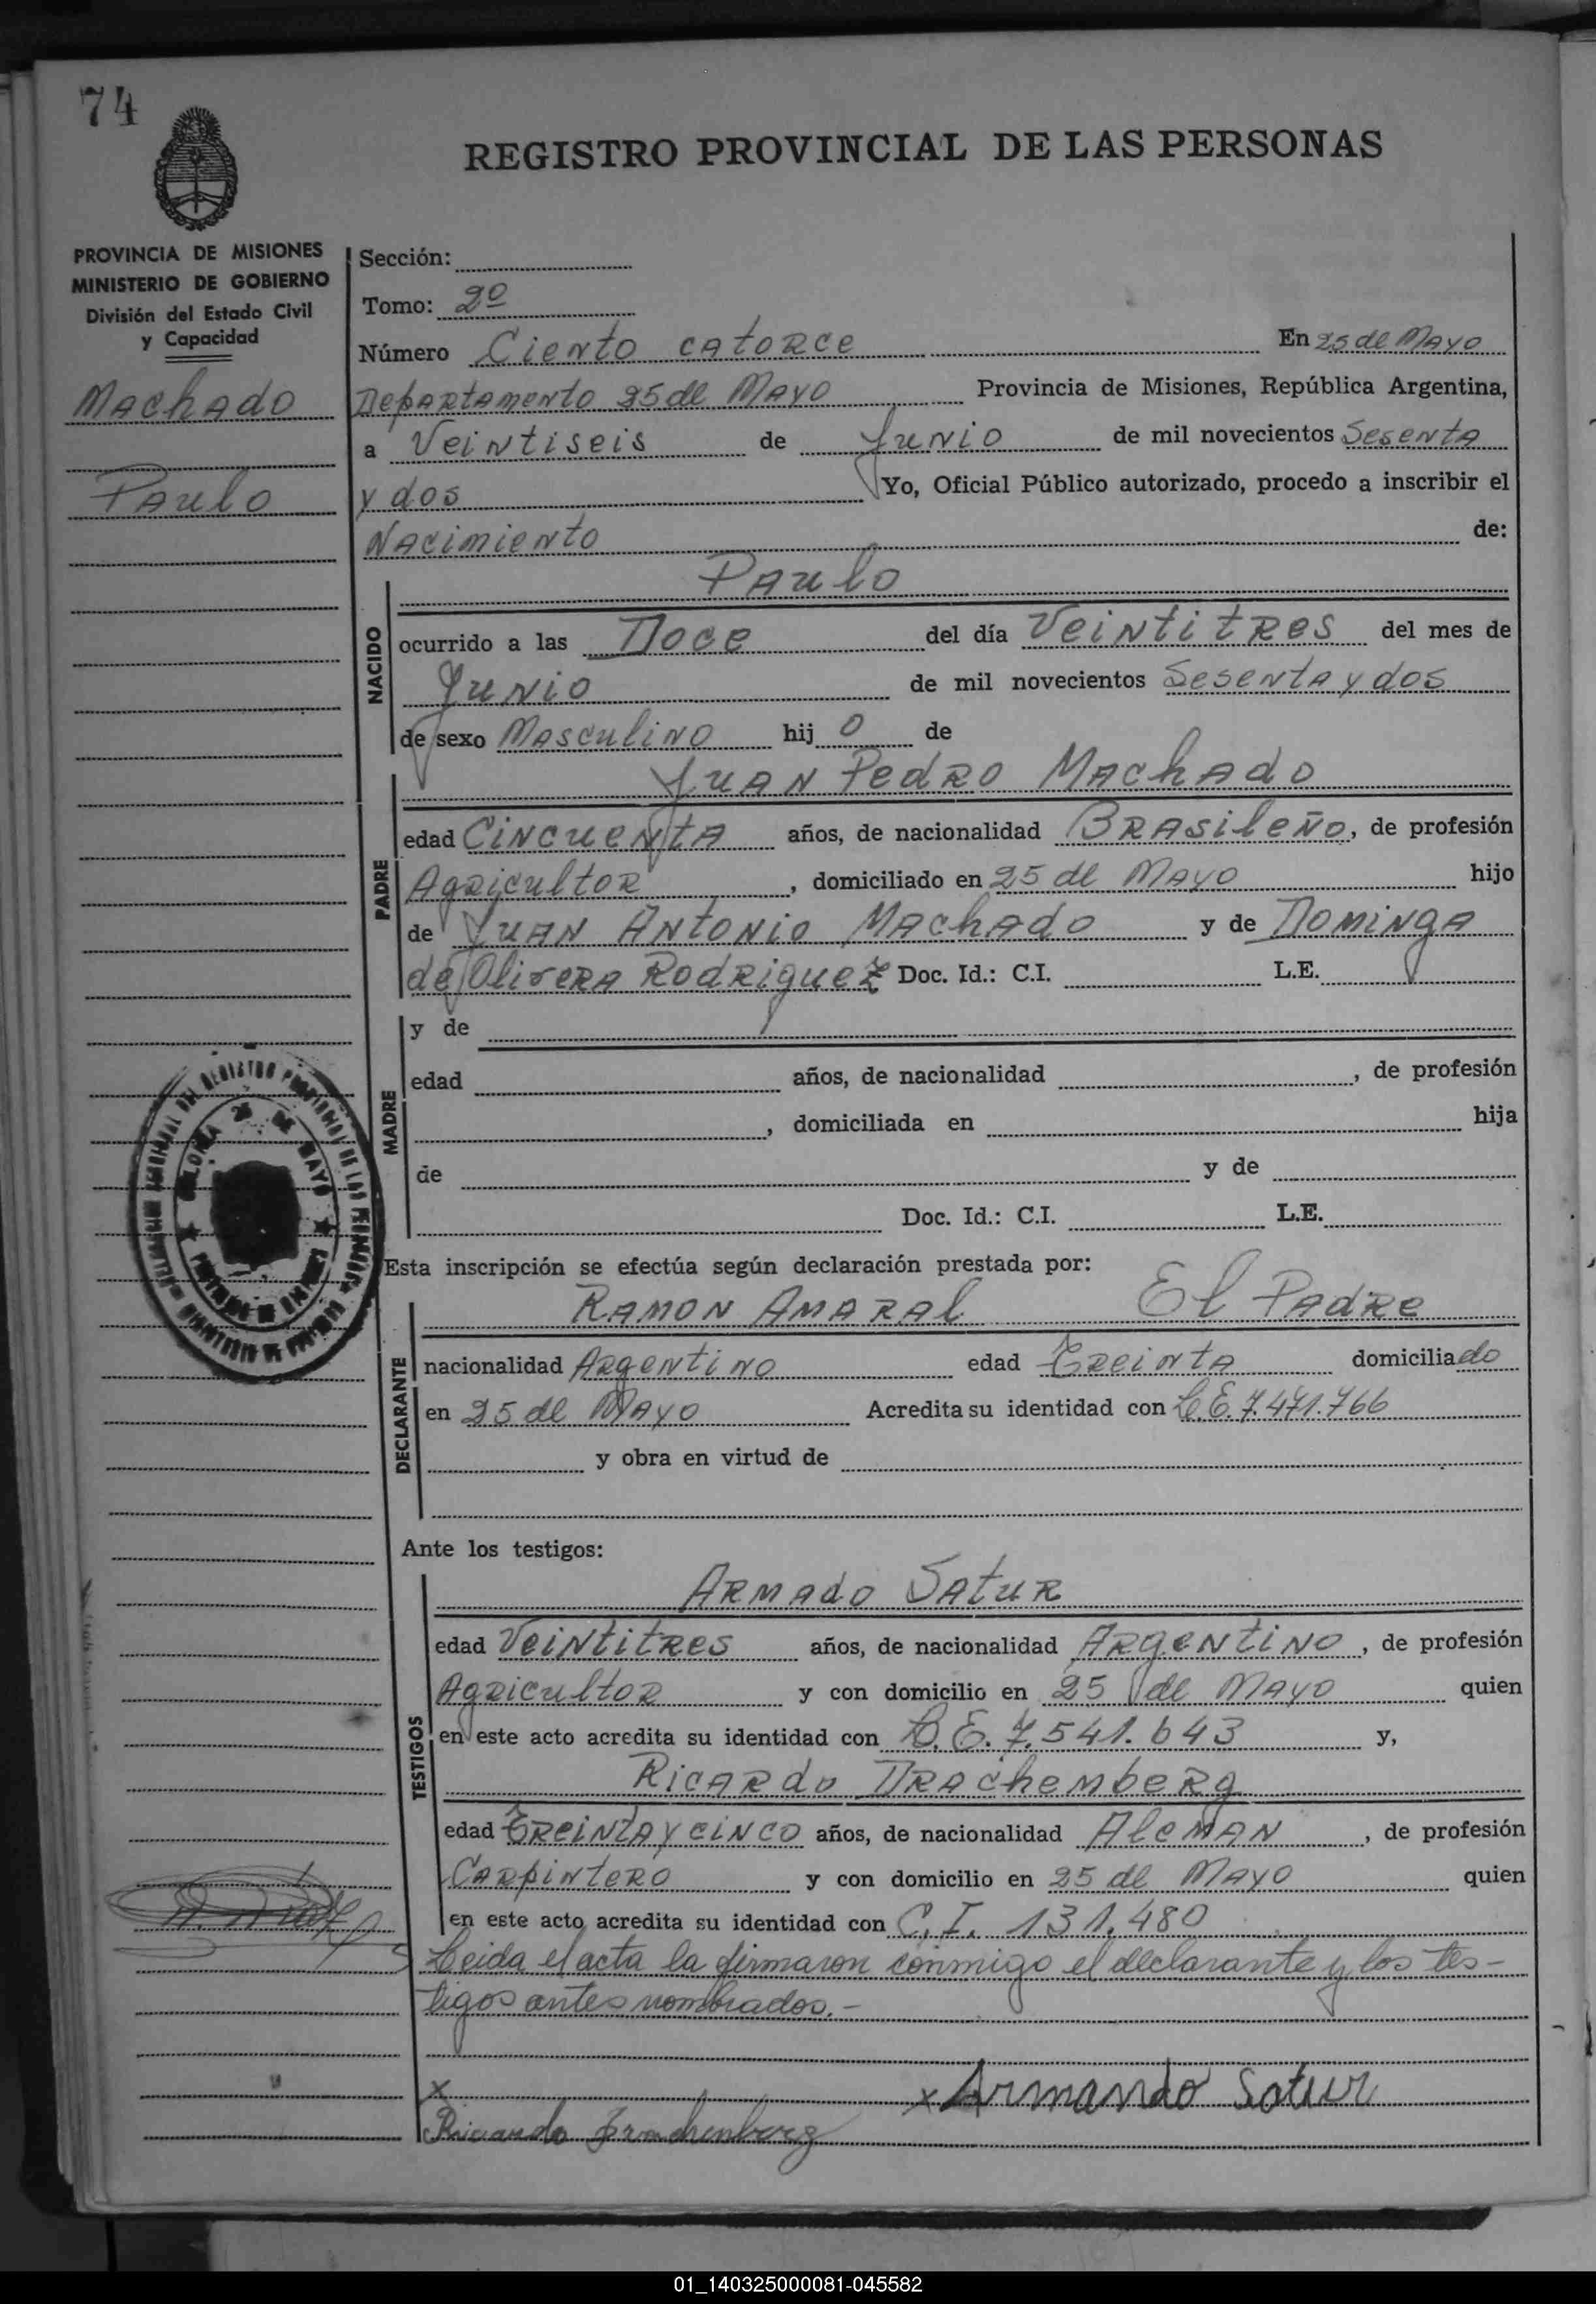 74
REGISTRO PROVINCIAL DE LAS PERSONAS
PROVINCIA DE MISIONES
MINISTERIO DE GOBIERNO
División del Estado Civil
y Capacidad
Machado
Paulo
Sección:
Tomo: 2º
Número Ciento catorce En 25 de Mayo
Departamento 25 de Mayo Provincia de Misiones, República Argentina,
a Veintiseis de Junio de mil novecientos Sesenta
y dos Yo, Oficial Público autorizado, procedo a inscribir el
Nacimiento de:
NACIDO
Paulo
ocurrido a las Doce del día Veintitres del mes de
Junio de mil novecientos Sesenta y dos
de sexo Masculino hijo de
PADRE
Juan Pedro Machado
edad Cincuenta años, de nacionalidad Brasileño, de profesión
Agricultor, domiciliado en 25 de Mayo hijo
de Juan Antonio Machado y de Dominga
de Olivera Rodriguez Doc. Id.: C.I. L.E.
MADRE
y de
edad años, de nacionalidad , de profesión
, domiciliada en hija
de y de
Doc. Id.: C.I. L.E.
COLONIA 25 DE MAYO
Esta inscripción se efectúa según declaración prestada por:
DECLARANTE
Ramon Amaral El Padre
nacionalidad Argentino edad Treinta domiciliado
en 25 de Mayo Acredita su identidad con L.E. 7.471.766
y obra en virtud de
Ante los testigos:
TESTIGOS
Armado Satur
edad Veintitres años, de nacionalidad Argentino, de profesión
Agricultor y con domicilio en 25 de Mayo quien
en este acto acredita su identidad con L.E. 7.541.643 y,
Ricardo Drachemberg
edad Treinta y cinco años, de nacionalidad Aleman, de profesión
Carpintero y con domicilio en 25 de Mayo quien
en este acto acredita su identidad con C.I. 131.480
Leida el acta la firmaron conmigo el declarante y los tes-
tigos antes nombrados.-
x x Armando Satur
Ricardo Drachenberg
01_140325000081-045582